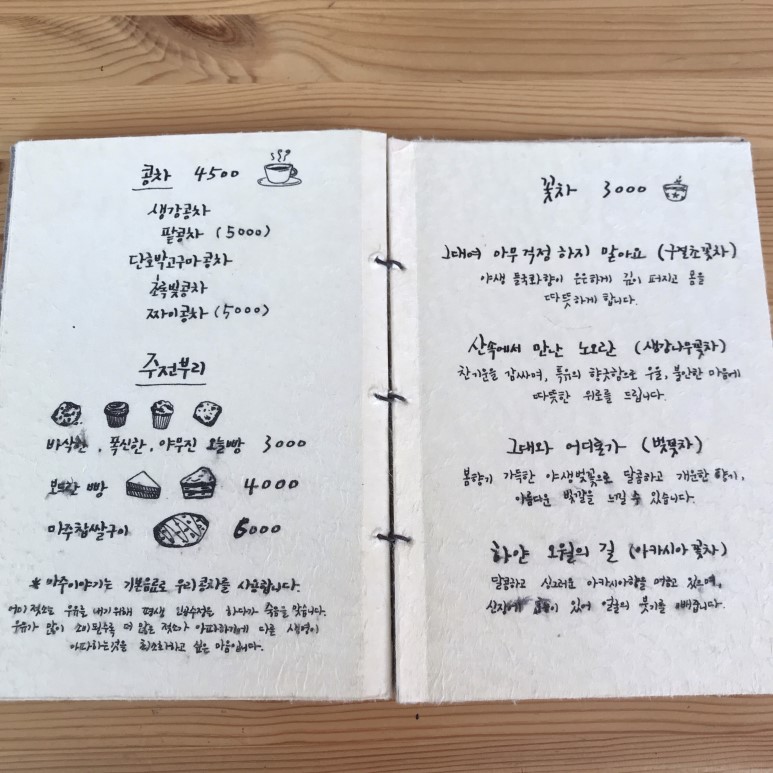 콩차 4500
생강콩차
팥콩차 (5000)
단호박고구마콩차
초록빛콩차
짜이콩차 (5000)
주전부리
바삭한, 폭신한, 야무진 오늘빵 3000
보드란 빵 4000
마주찹쌀구이 6000
* 마주이야기는 기본음료로 우리콩차를 사용합니다.
어미 젖소는 우유를 내기위해 평생 인공수정은 하다가 죽음을 맞습니다.
우유가 많이 소비될수록 더 많은 젖소가 아파하기에 다른 생명이
아파하는것을 최소화하고 싶은 마음입니다.
꽃차 3000
그대여 아무 걱정 하지 말아요 (구절초꽃차)
야생 들국화향이 은은하게 깊이 퍼지고 몸을
따뜻하게 합니다.
산속에서 만난 노오란 (생강나무꽃차)
찬기운을 감싸며, 특유의 향긋함으로 우울, 불안한 마음에
따뜻한 위로를 드립니다.
그대와 어디론가 (벚꽃차)
봄향기 가득한 야생벚꽃으로 달콤하고 개운한 향기,
아름다운 빛깔을 느낄 수 있습니다.
하얀 오월의 길 (아카시아 꽃차)
달콤하고 싱그러운 아카시아향을 머금고 있으며,
있어 얼굴의 붓기를 빼줍니다.